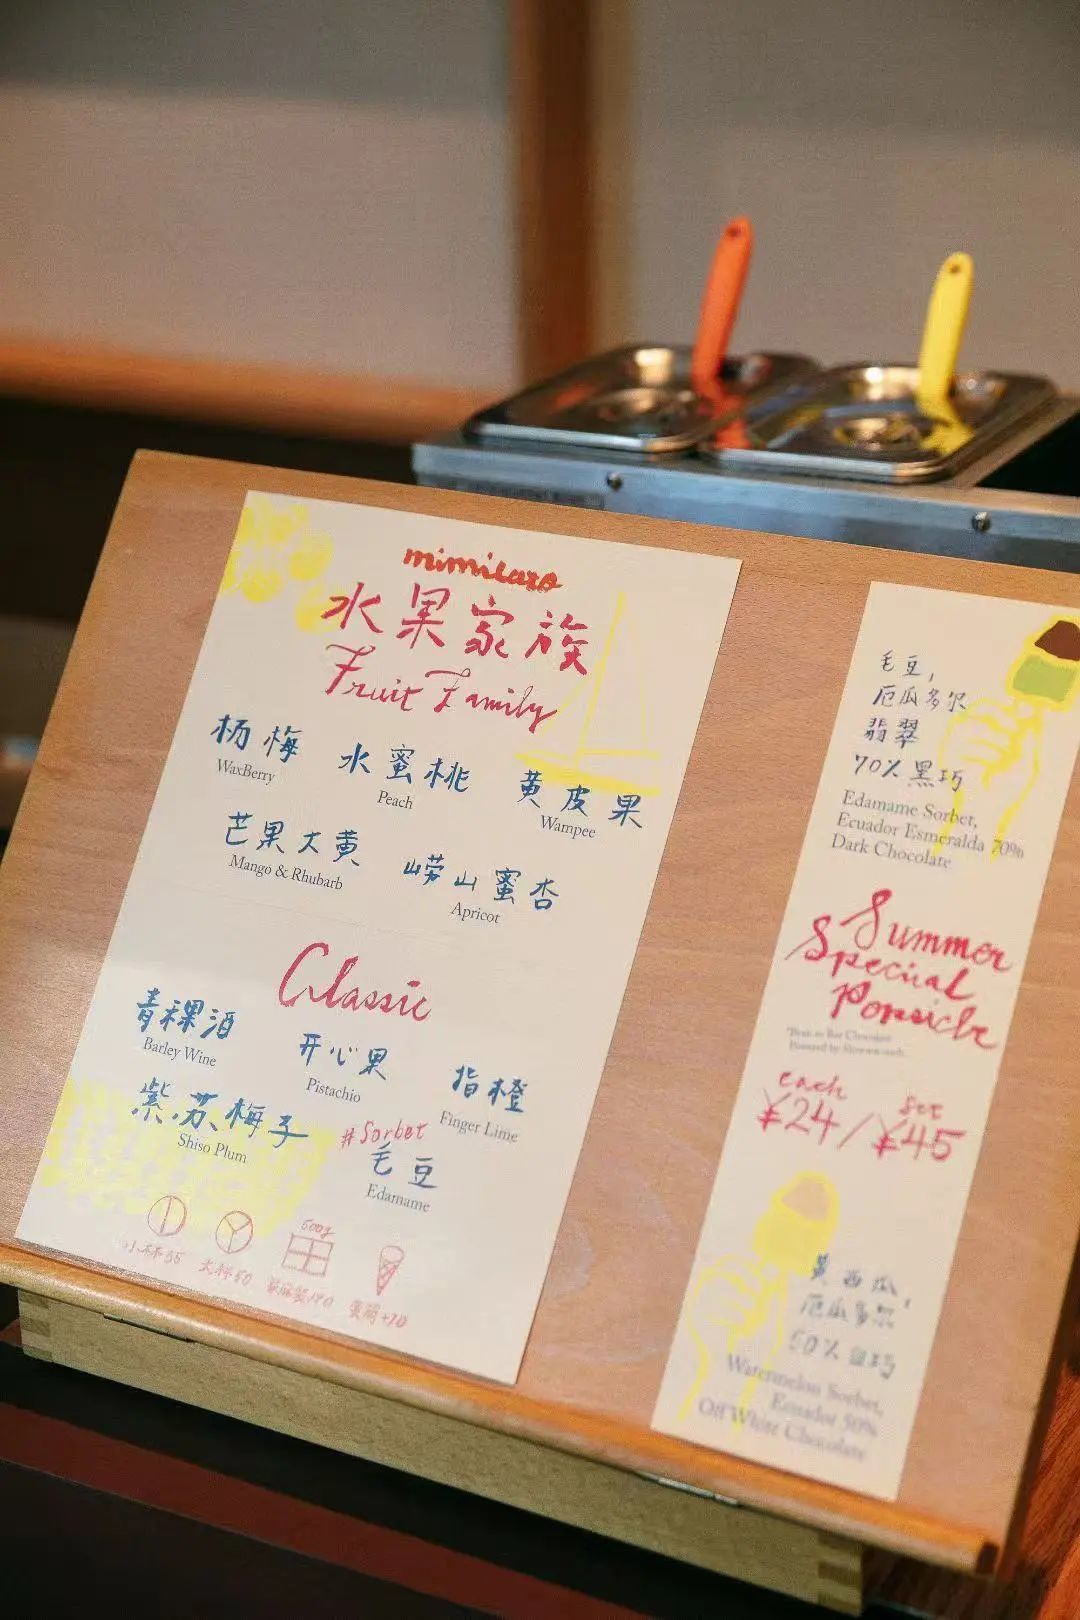 mimicaro
水果家族
Fruit Family
杨梅
WaxBerry
水蜜桃
Peach
黄皮果
Wampee
芒果大黄
Mango & Rhubarb
崂山蜜杏
Apricot
Classic
青稞酒
Barley Wine
开心果
Pistachio
指橙
Finger Lime
紫苏梅子
Shiso Plum
#Sorbet
毛豆
Edamame
500g
小杯35
大杯50
蛋筒+10
毛豆,
厄瓜多尔
翡翠
70%黑巧
Edamame Sorbet,
Ecuador Esmeralda 70%
Dark Chocolate
Summer
Special
Popsicle
*Bean to Bar Chocolate
each
set
¥24/¥45
黄西瓜,
厄瓜多尔
50%白巧
Watermelon Sorbet,
Ecuador 50%
Off White Chocolate